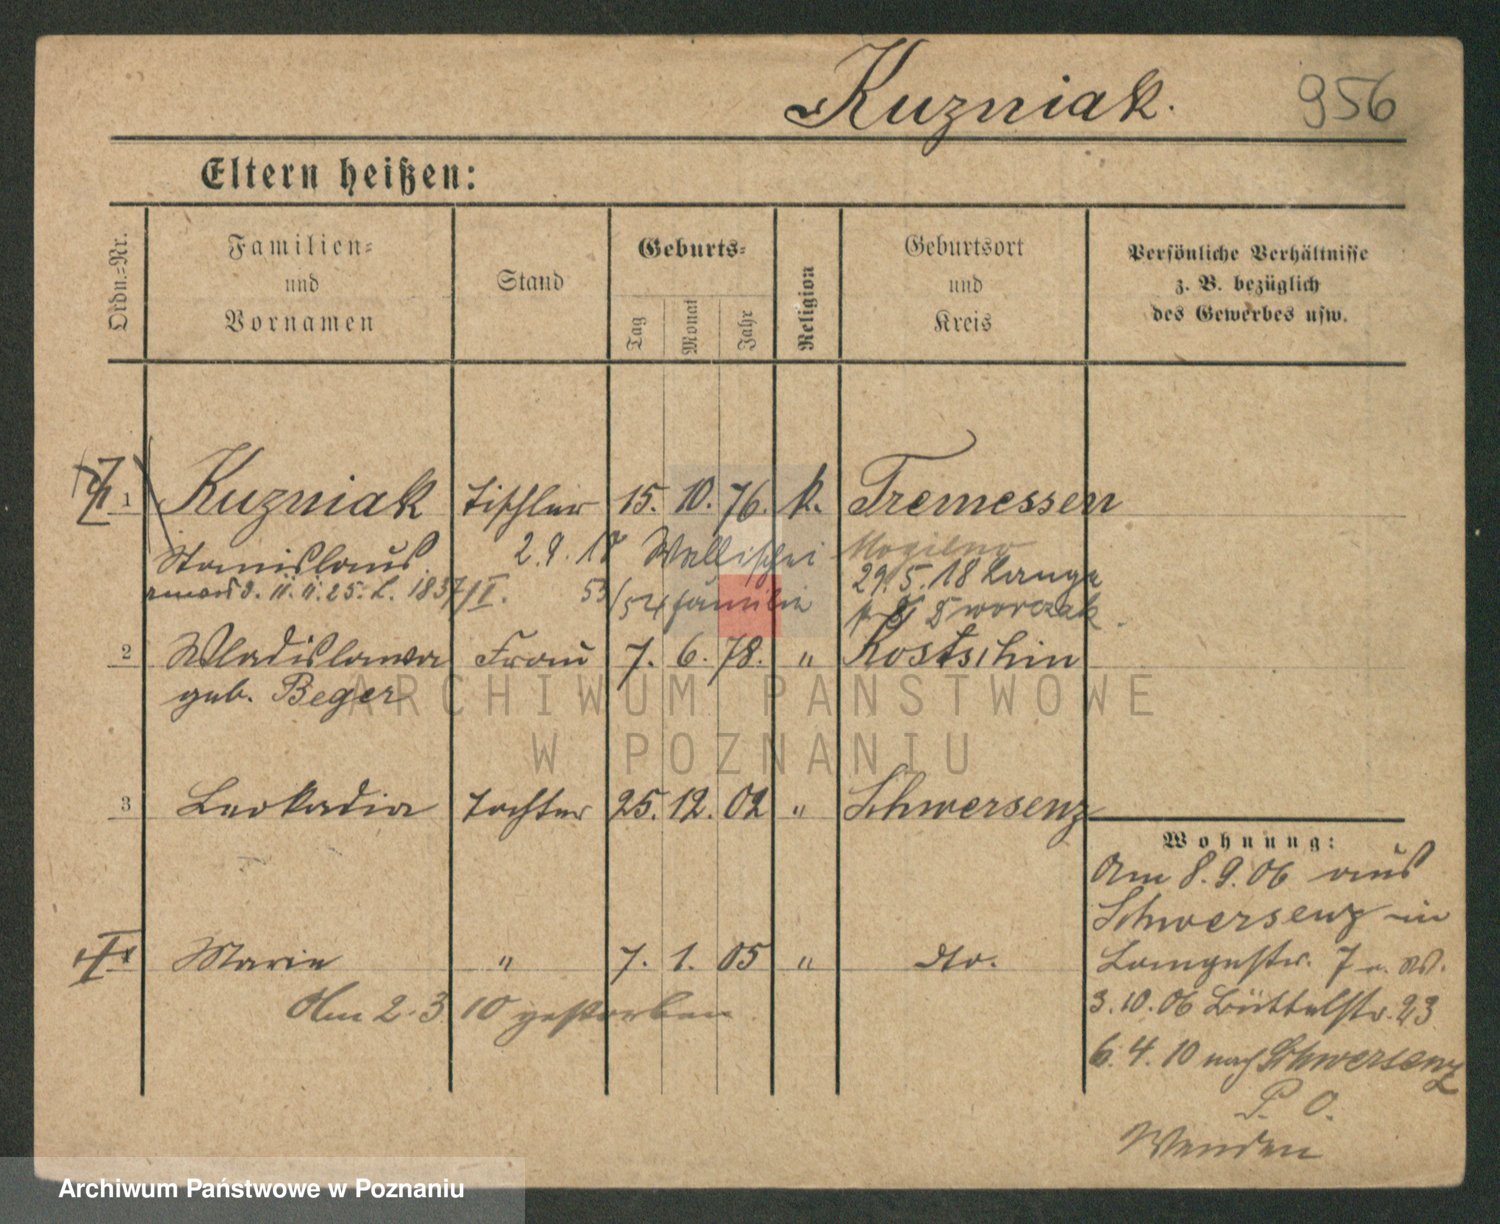 Kuzniak. 956
Eltern heißen:
Ordn.=Nr.
Familien=
und
Vornamen
Stand
Geburts=
Tag Monat Jahr
Religion
Geburtsort
und
Kreis
Persönliche Verhältnisse
z. B. bezüglich
des Gewerbes usw.
1 Kuzniak Tischler 15. 10. 76. k. Tremessen
Stanislaus 2.9.18 Wallischei Mogilno
25. L. 1837/II. 53/54 familie 29.5.18 Lange
Dworczak
2 Wladislawa Frau 7. 6. 78. " Kostschin
geb. Beger
3 Leokadia Tochter 25. 12. 02 " Schwersenz
Marie " 7. 1. 05 " dto.
Am 2.3.10 gestorben
Wohnung:
Am 8.9.06 aus
Schwersenz in
Langestr. 7
3.10.06 Büttelstr. 23
6.4.10 nach Schwersenz
P. O.
Wenden
ARCHIWUM PAŃSTWOWE
W POZNANIU
Archiwum Państwowe w Poznaniu